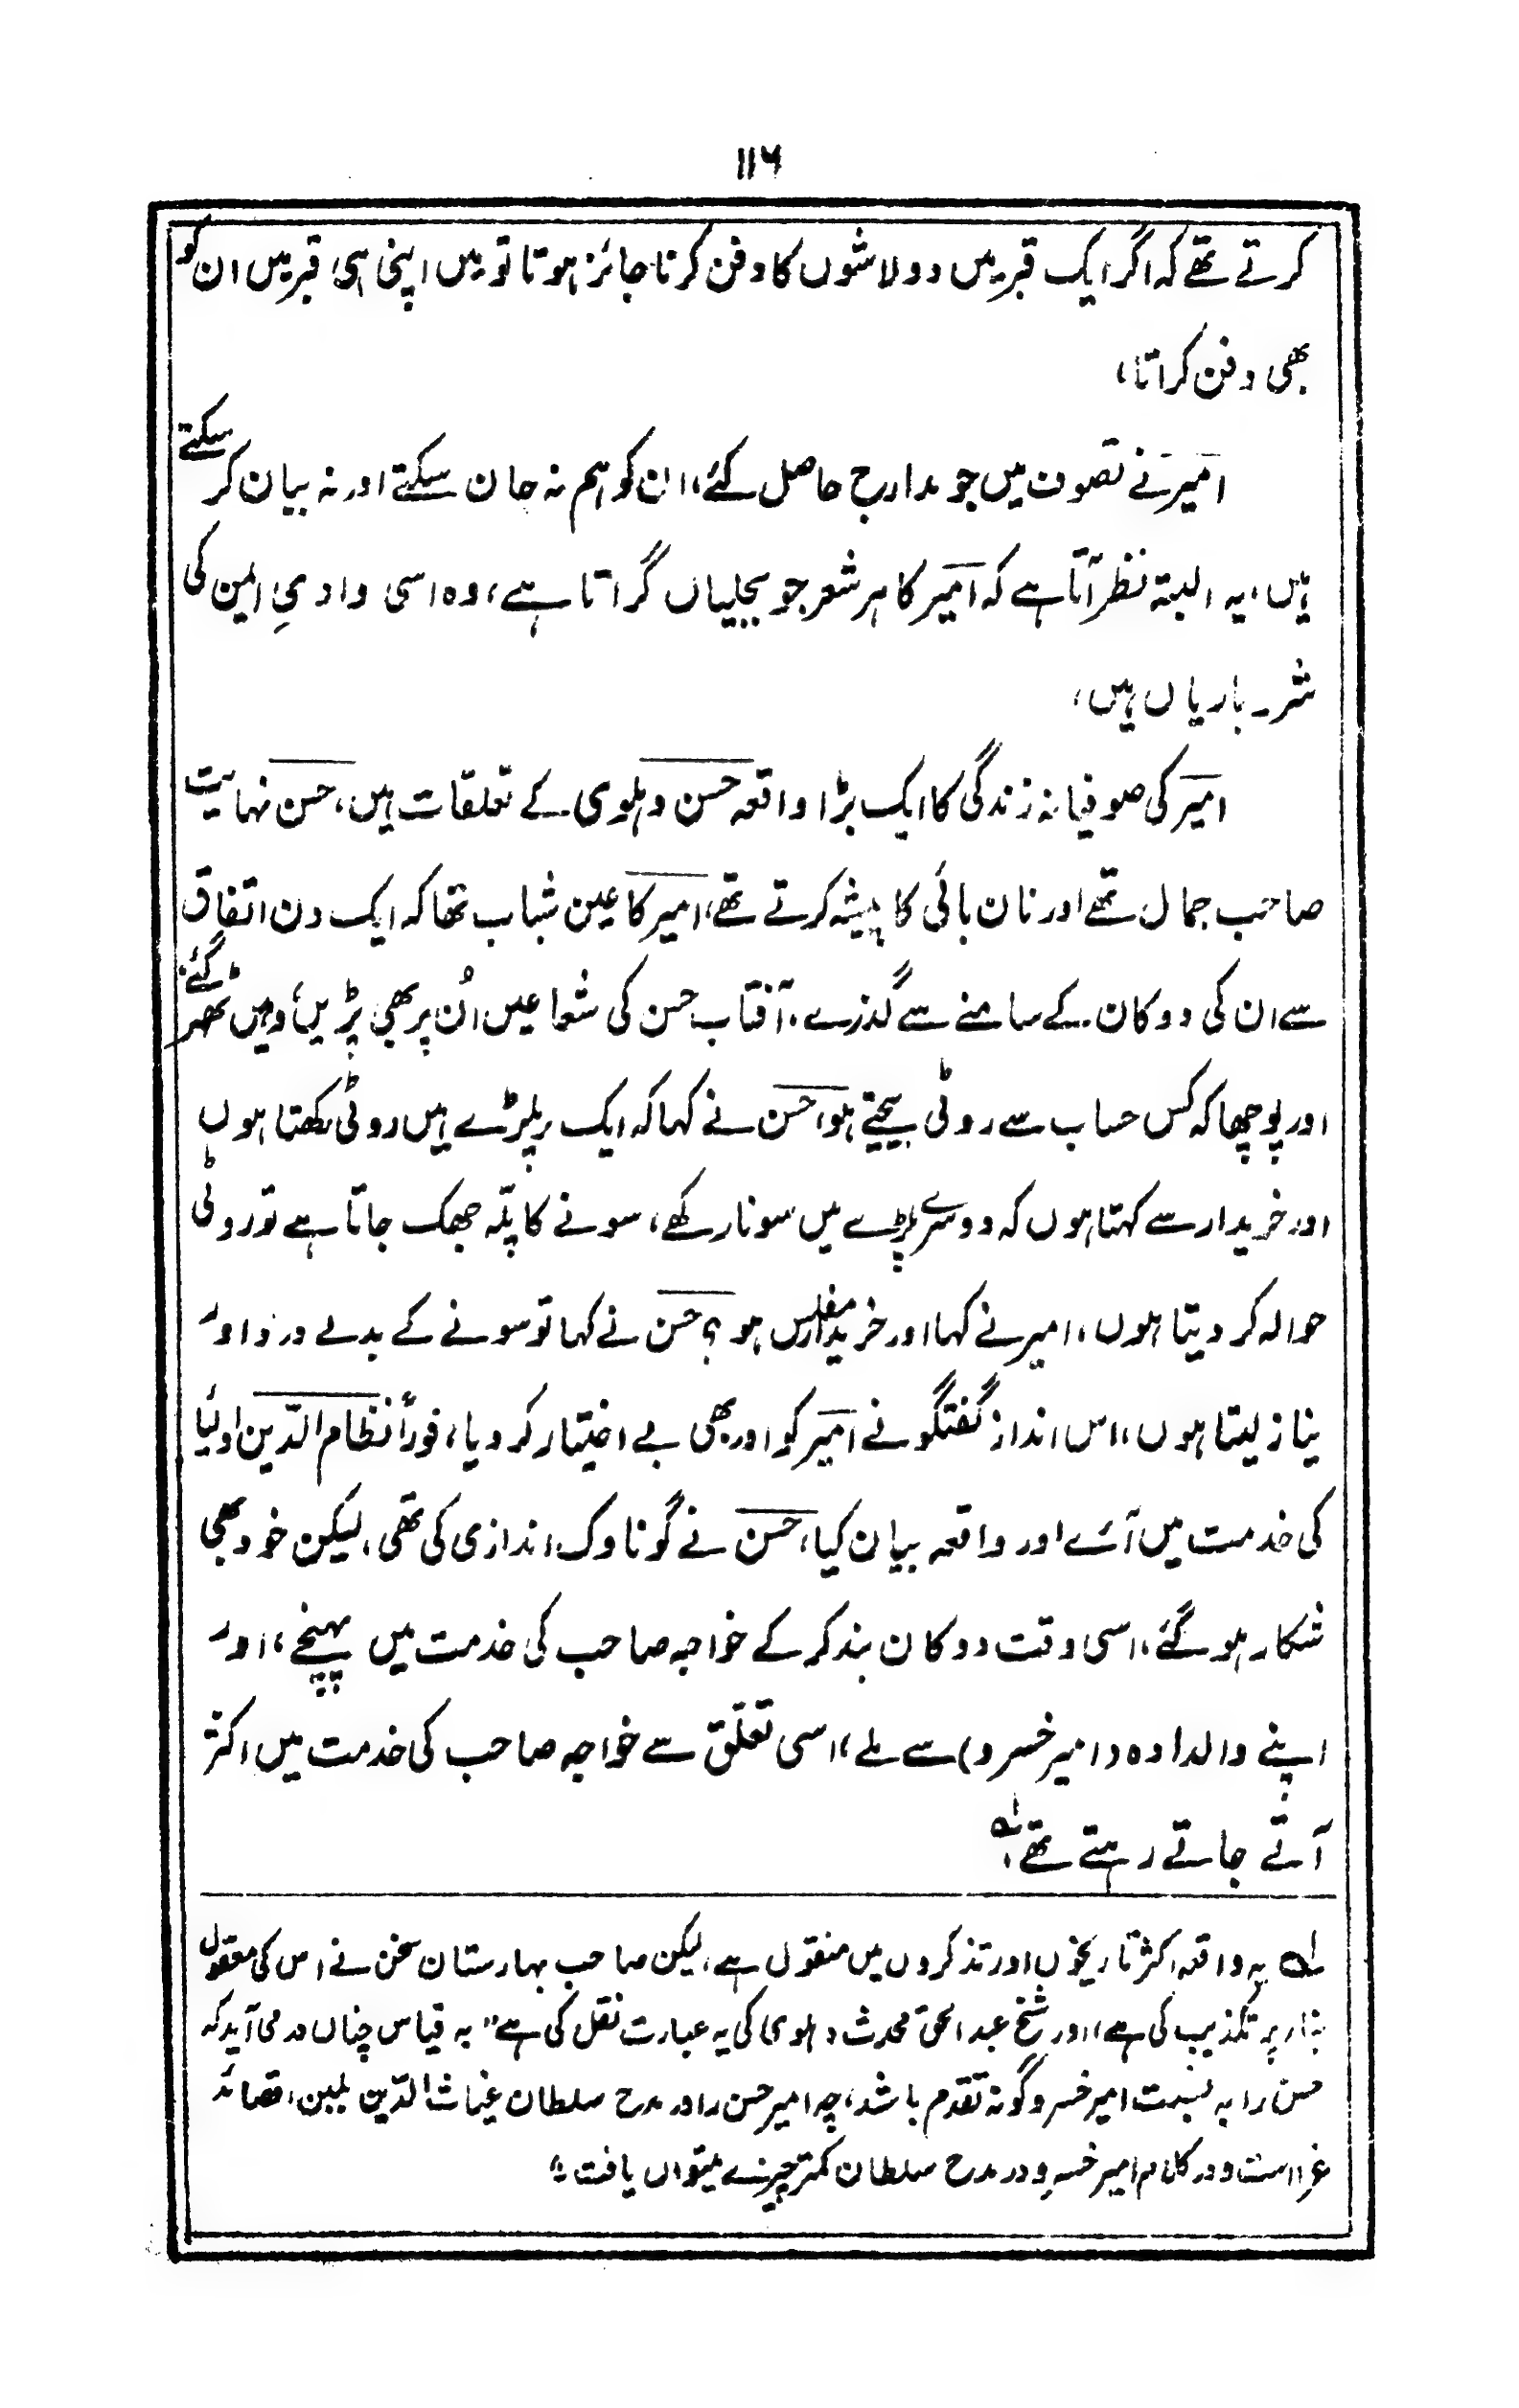 ۱۱۶
کرتے تھے کہ اگر ایک قبر میں دو لاشوں کا دفن کرنا جائز ہوتا تو میں اپنی ہی قبر میں ان کو
بھی دفن کراتا،
امیر نے تصوف میں جو مدارج حاصل کئے، ان کو ہم نہ جان سکتے اور نہ بیان کر سکتے
ہیں، یہ البتہ نظر آتا ہے کہ امیر کا ہر شعر جو بجلیاں گراتا ہے، وہ اسی وادیِ ایمن کی
شرر باریاں ہیں،
امیر کی صوفیانہ زندگی کا ایک بڑا واقعہ حسن دہلوی کے تعلقات ہیں، حسن نہایت
صاحب جمال تھے اور نان بائی کا پیشہ کرتے تھے، امیر کا عین شباب تھا کہ ایک دن اتفاق
سے ان کی دوکان کے سامنے سے گذرے، آفتاب حسن کی شعاعیں اُن پر بھی پڑیں، وہیں ٹھہر گئے
اور پوچھا کہ کس حساب سے روٹی بیچتے ہو، حسن نے کہا کہ ایک پلڑے میں روٹی رکھتا ہوں
اور خریدار سے کہتا ہوں کہ دوسرے پلڑے میں سونا رکھے، سونے کا پلّہ جھک جاتا ہے تو روٹی
حوالہ کر دیتا ہوں، امیر نے کہا اور خریدار مفلس ہو؟ حسن نے کہا تو سونے کے بدلے درد اور
نیاز لیتا ہوں، اس انداز گفتگو نے امیر کو اور بھی بے اختیار کر دیا، فوراً نظام الدّین اولیا
کی خدمت میں آئے اور واقعہ بیان کیا، حسن نے گو ناوک اندازی کی تھی، لیکن خود بھی
شکار ہو گئے، اسی وقت دوکان بند کر کے خواجہ صاحب کی خدمت میں پہنچے، اور
اپنے دالدادہ (امیر خسرو) سے ملے، اسی تعلّق سے خواجہ صاحب کی خدمت میں اکثر
آتے جاتے رہتے تھے ؎۱
؎۱ یہ واقعہ اکثر تاریخوں اور تذکروں میں منقول ہے، لیکن صاحب بہارستان سخن نے اس کی معقول
بنا پر تکذیب کی ہے، اور شیخ عبد الحق محدث دہلوی کی یہ عبارت نقل کی ہے" بہ قیاس چناں در می آید کہ
حسن را بہ نسبت امیر خسرو گونہ تقدم باشد، چہ امیر حسن را در مدح سلطان غیاث الدّین بلبن، قصائد
غرا است و در کلام امیر خسرو در مدح سلطان کمتر چیزے میتواں یافت"